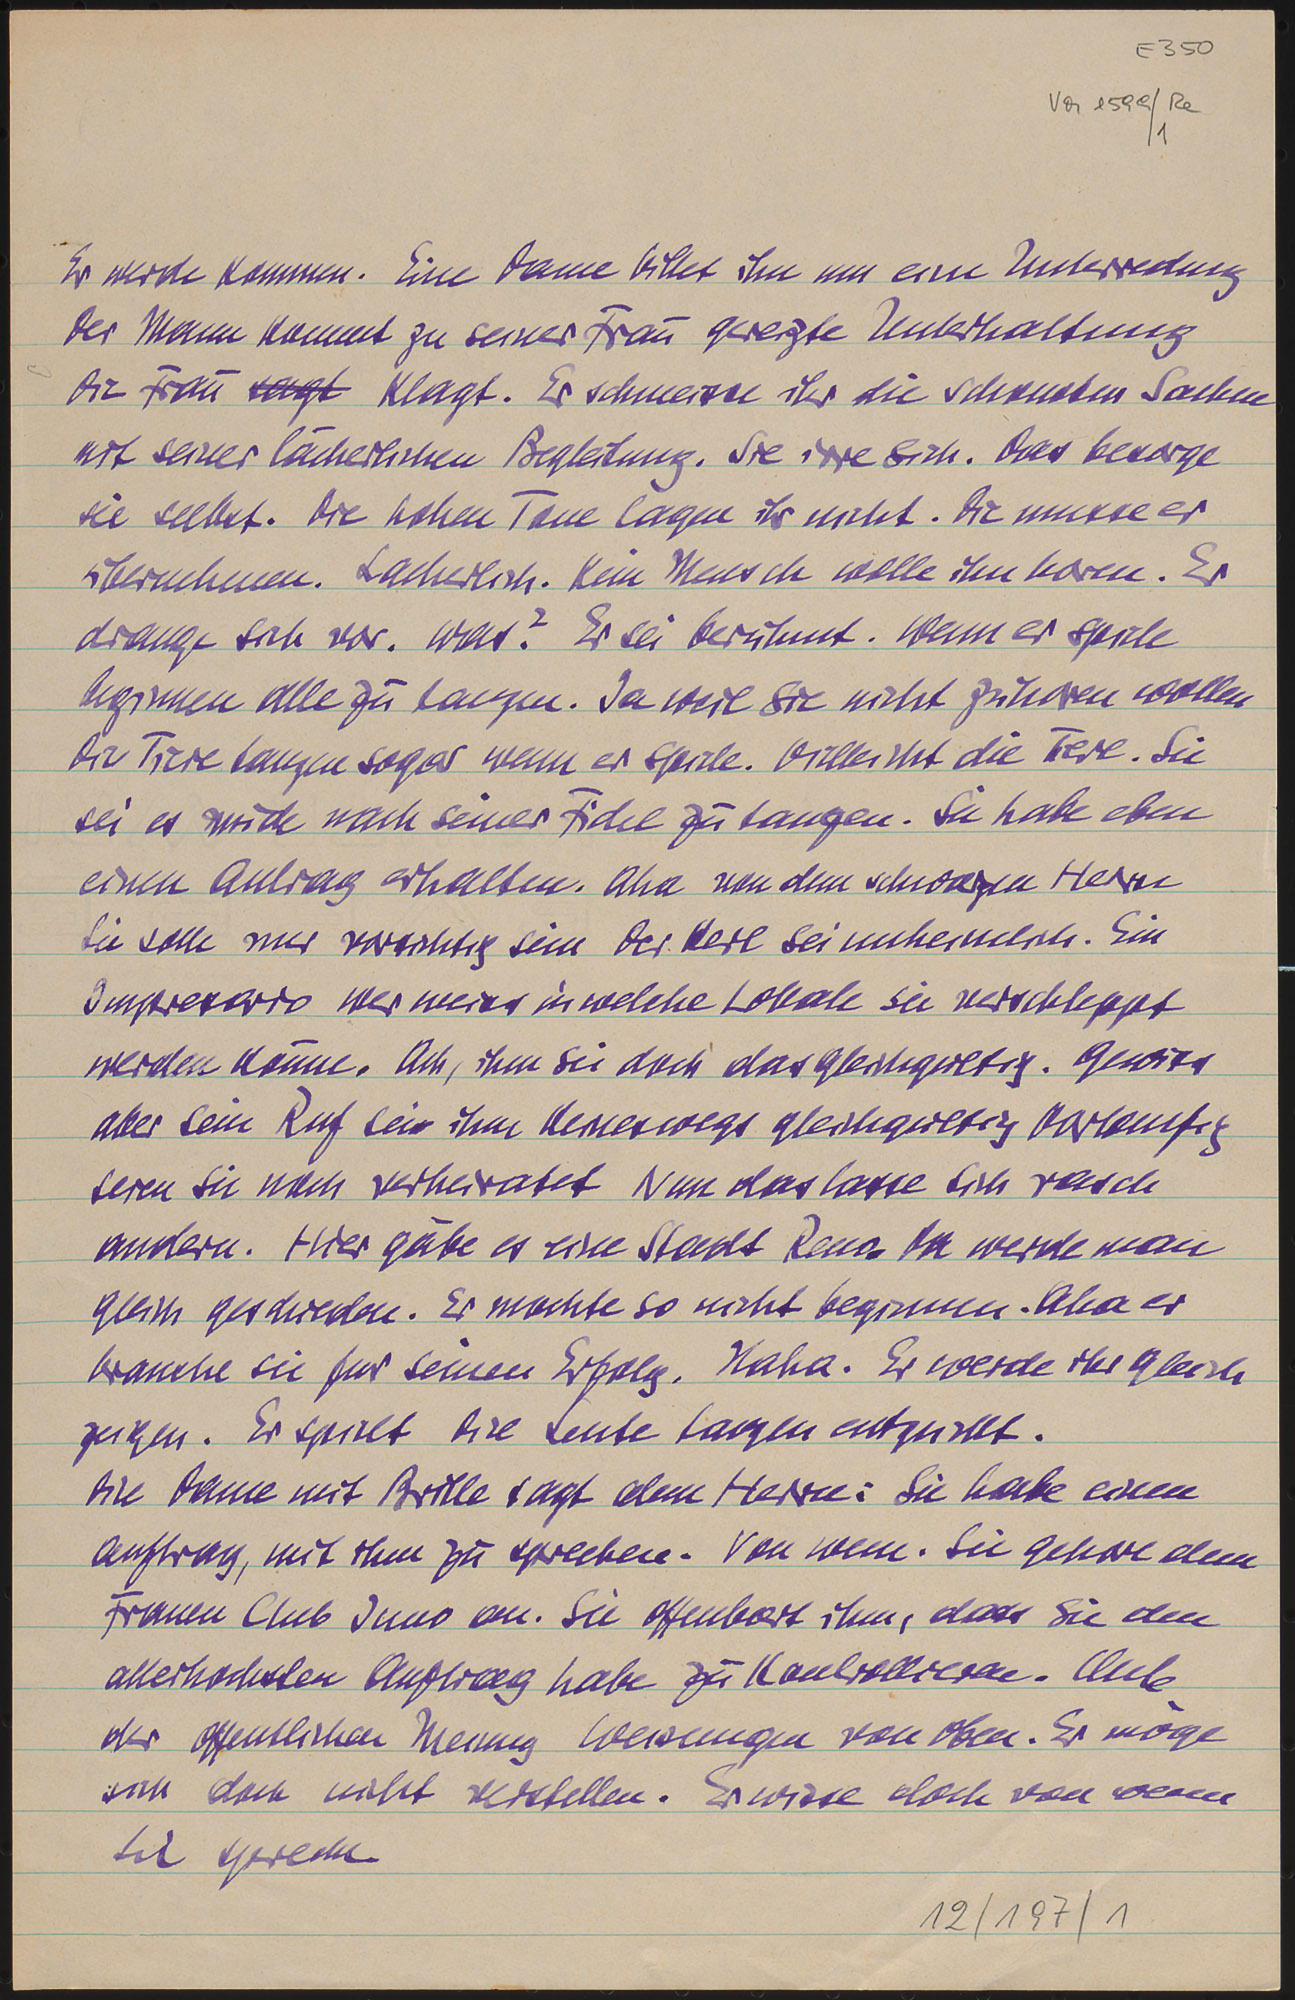 E350
Vor 1599/Re
1
Er werde kommen. Eine Dame bittet ihn um eine Unterredung
Der Mann kommt zu seiner Frau gereizte Unterhaltung
Die Frau sagt klagt. Er schmeisse ihr die schonsten Sachen
mit seiner lächerlichen Begleitung. Sie irre sich. Das besorge
sie selbst. Die hohen Tone lagen ihr nicht. Die musse er
übernehmen. Lacherlich. Kein Mensch wolle ihn horen. Er
drange sich vor. Was? Er sei beruhmt. Wenn er spiele
beginnen alle zu tanzen. Ja weil sie nicht zuhoren wollen
Die Tiere tanzen sogar wenn er spiele. Vielleicht die Tiere. Sie
sei es mude nach seiner Fidel zu tanzen. Sie habe eben
einen Antrag erhalten. Aha von dem schwarzen Herrn
Sie solle nur vorsichtig sein Der Kerl sei unheimlich. Ein
Impresario wer weiss in welche Lokale sie verschleppt
werden könne. Ach, ihm sei doch das gleichgueltig. Gewiss
aber sein Ruf sei ihm keineswegs gleichgueltig Vorlaufig
seien sie noch verheiratet Nun das lasse sich rasch
andern. Hier gäbe es eine Stadt Reno. Da werde man
gleich geschieden. Er mochte so nicht beginnen. Aha er
brauche sie fur seinen Erfolg. Haha. Er werde ihr gleich
zeigen. Er spielt Die Leute tanzen entzuckt.
Die Dame mit Brille sagt dem Herrn: Sie habe einen
Auftrag, mit ihm zu sprechen. Von wem. Sie gehore dem
Frauen Club Juno an. Sie offenbart ihm, dass sie den
allerhochsten Auftrag habe zu kontrollieren. Club
der offentlichen Meinung Weisungen von Oben. Er möge
sich doch nicht verstellen. Er wisse doch von wem
sie spreche
12/197/1